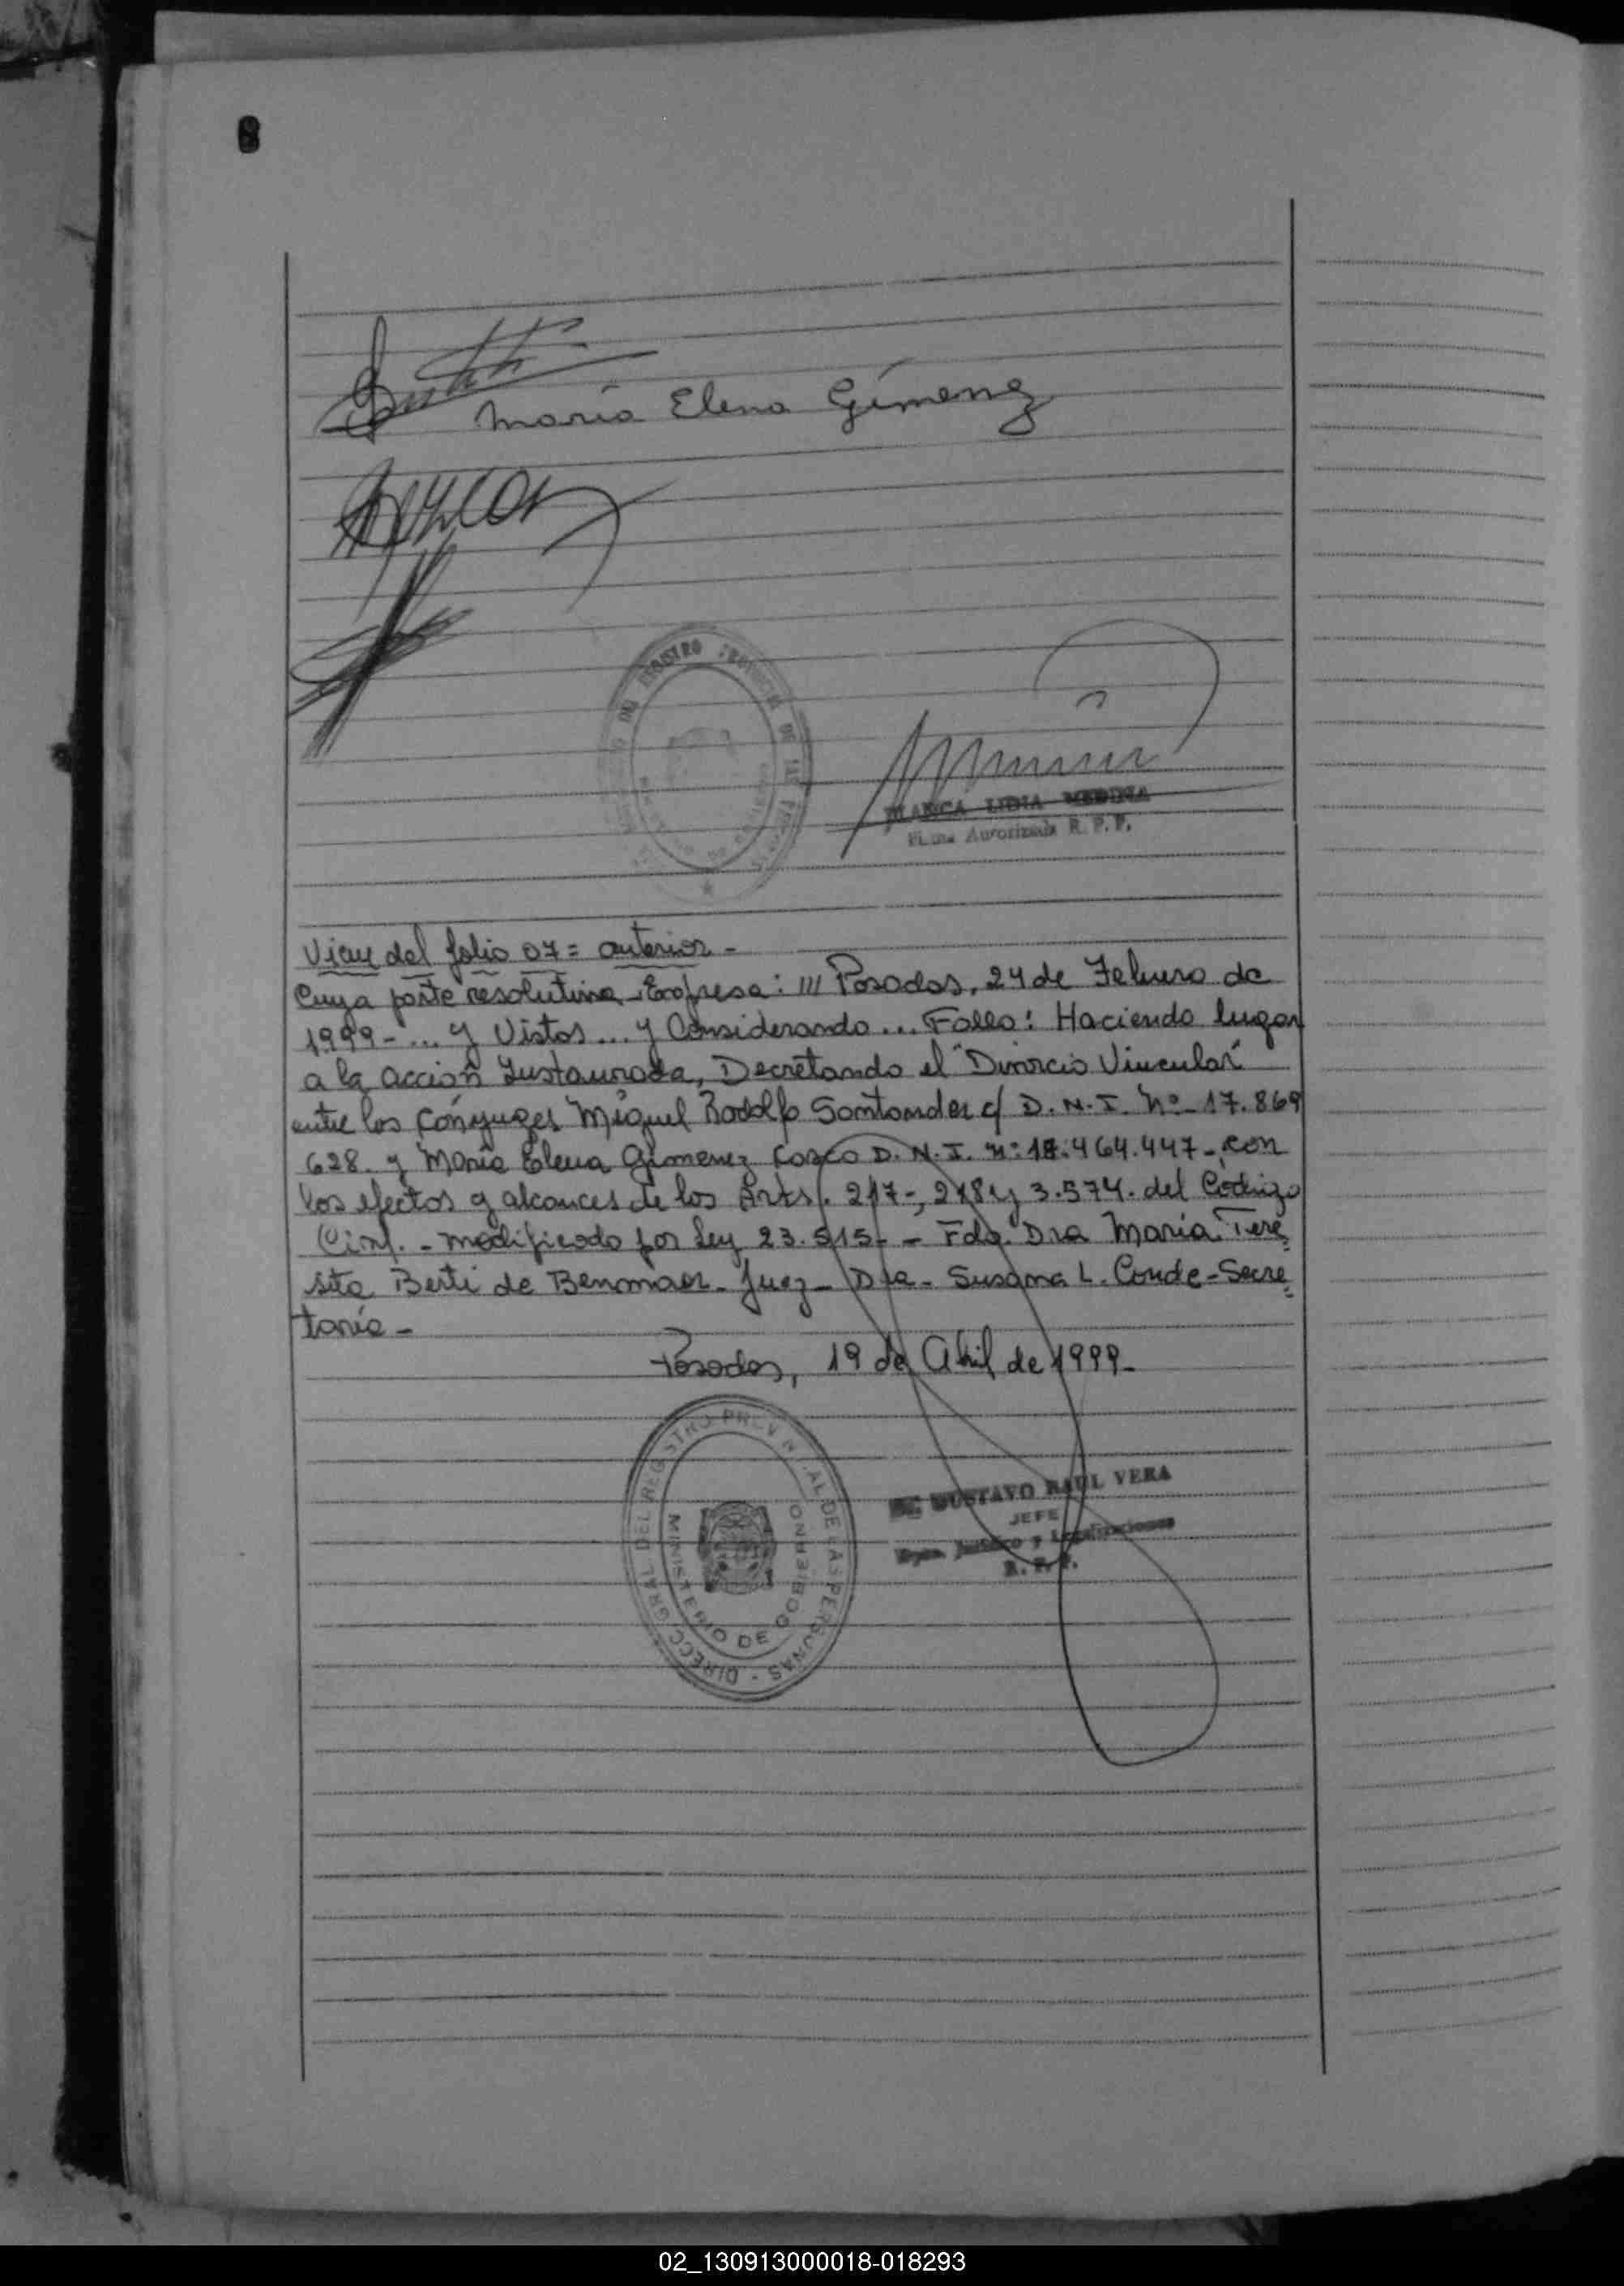 8
Maria Elena Gimenez
BLANCA LIDIA MEDINA
Firma Autorizada R. P. P.
Viene del folio 07 = anterior -
Cuya parte resolutiva - Expresa: /// Posadas, 24 de Febrero de
1999 - ... y Vistos ... y Considerando ... Fallo: Haciendo lugar
a la acción Instaurada, Decretando el "Divorcio Vincular"
entre los cónyuges Miguel Rodolfo Santander c/ D.N.I. Nº - 17.869
628. y María Elena Gimenez D.N.I. nº: 18.464.447 - con
los efectos y alcances de los Arts. 217 -, 218 y 3.574. del Código
Civil. - modificado por Ley 23.515 - - Fdo. Dra María Tere=
sita Berti de - Juez - Dra - Susana L. Conde - Secre=
taria -
Posadas, 19 de Abril de 1999 -
DIRECC. GRAL. DEL REGISTRO PROVINCIAL DE LAS PERSONAS -
MINISTERIO DE GOBIERNO
GUSTAVO RAUL VERA
JEFE
Dpto. Jurídico y Legalizaciones
R. P. P.
02_130913000018-018293